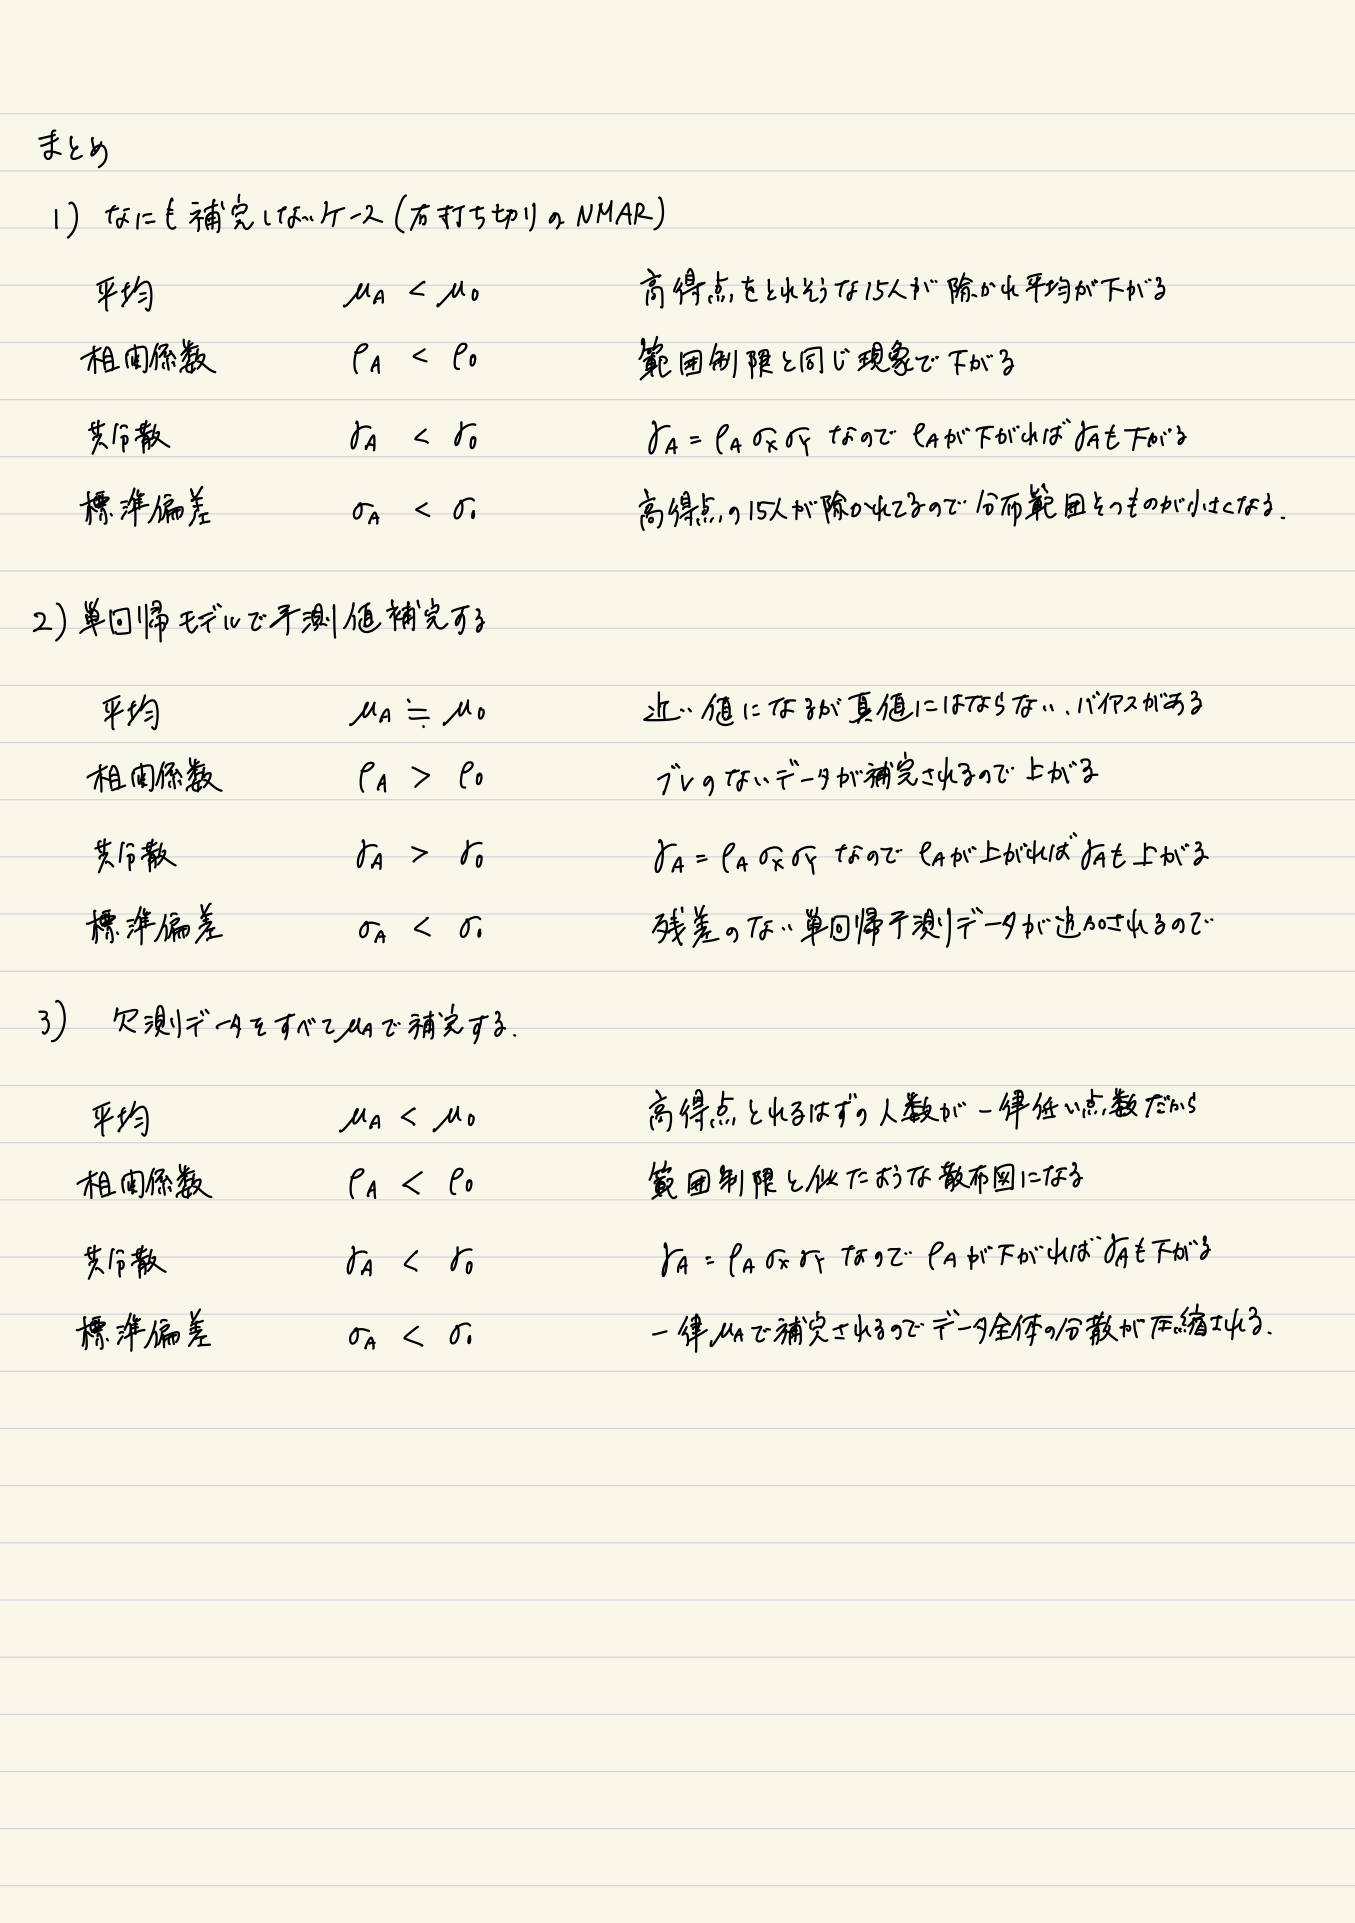 まとめ
1) なにも補完しないケース(右打ち切りのNMAR)
平均 μA < μ0 高得点をとれそうな15人が除かれ平均が下がる
相関係数 ρA < ρ0 範囲制限と同じ現象で下がる
共分散 γA < γ0 γA = ρA σx σY なので ρAが下がればγAも下がる
標準偏差 σA < σ0 高得点の15人が除かれてるので分布範囲そのものが小さくなる.
2) 単回帰モデルで予測値補完する
平均 μA ≒ μ0 近い値になるが真値にはならない、バイアスがある
相関係数 ρA > ρ0 ブレのないデータが補完されるので上がる
共分散 γA > γ0 γA = ρA σx σY なので ρAが上がればγAも上がる
標準偏差 σA < σ0 残差のない単回帰予測データが追加されるので
3) 欠測データをすべてμAで補完する.
平均 μA < μ0 高得点とれるはずの人数が一律低い点数だから
相関係数 ρA < ρ0 範囲制限と似たような散布図になる
共分散 γA < γ0 γA = ρA σx σY なので ρAが下がればγAも下がる
標準偏差 σA < σ0 一律μAで補完されるのでデータ全体の分散が圧縮される.